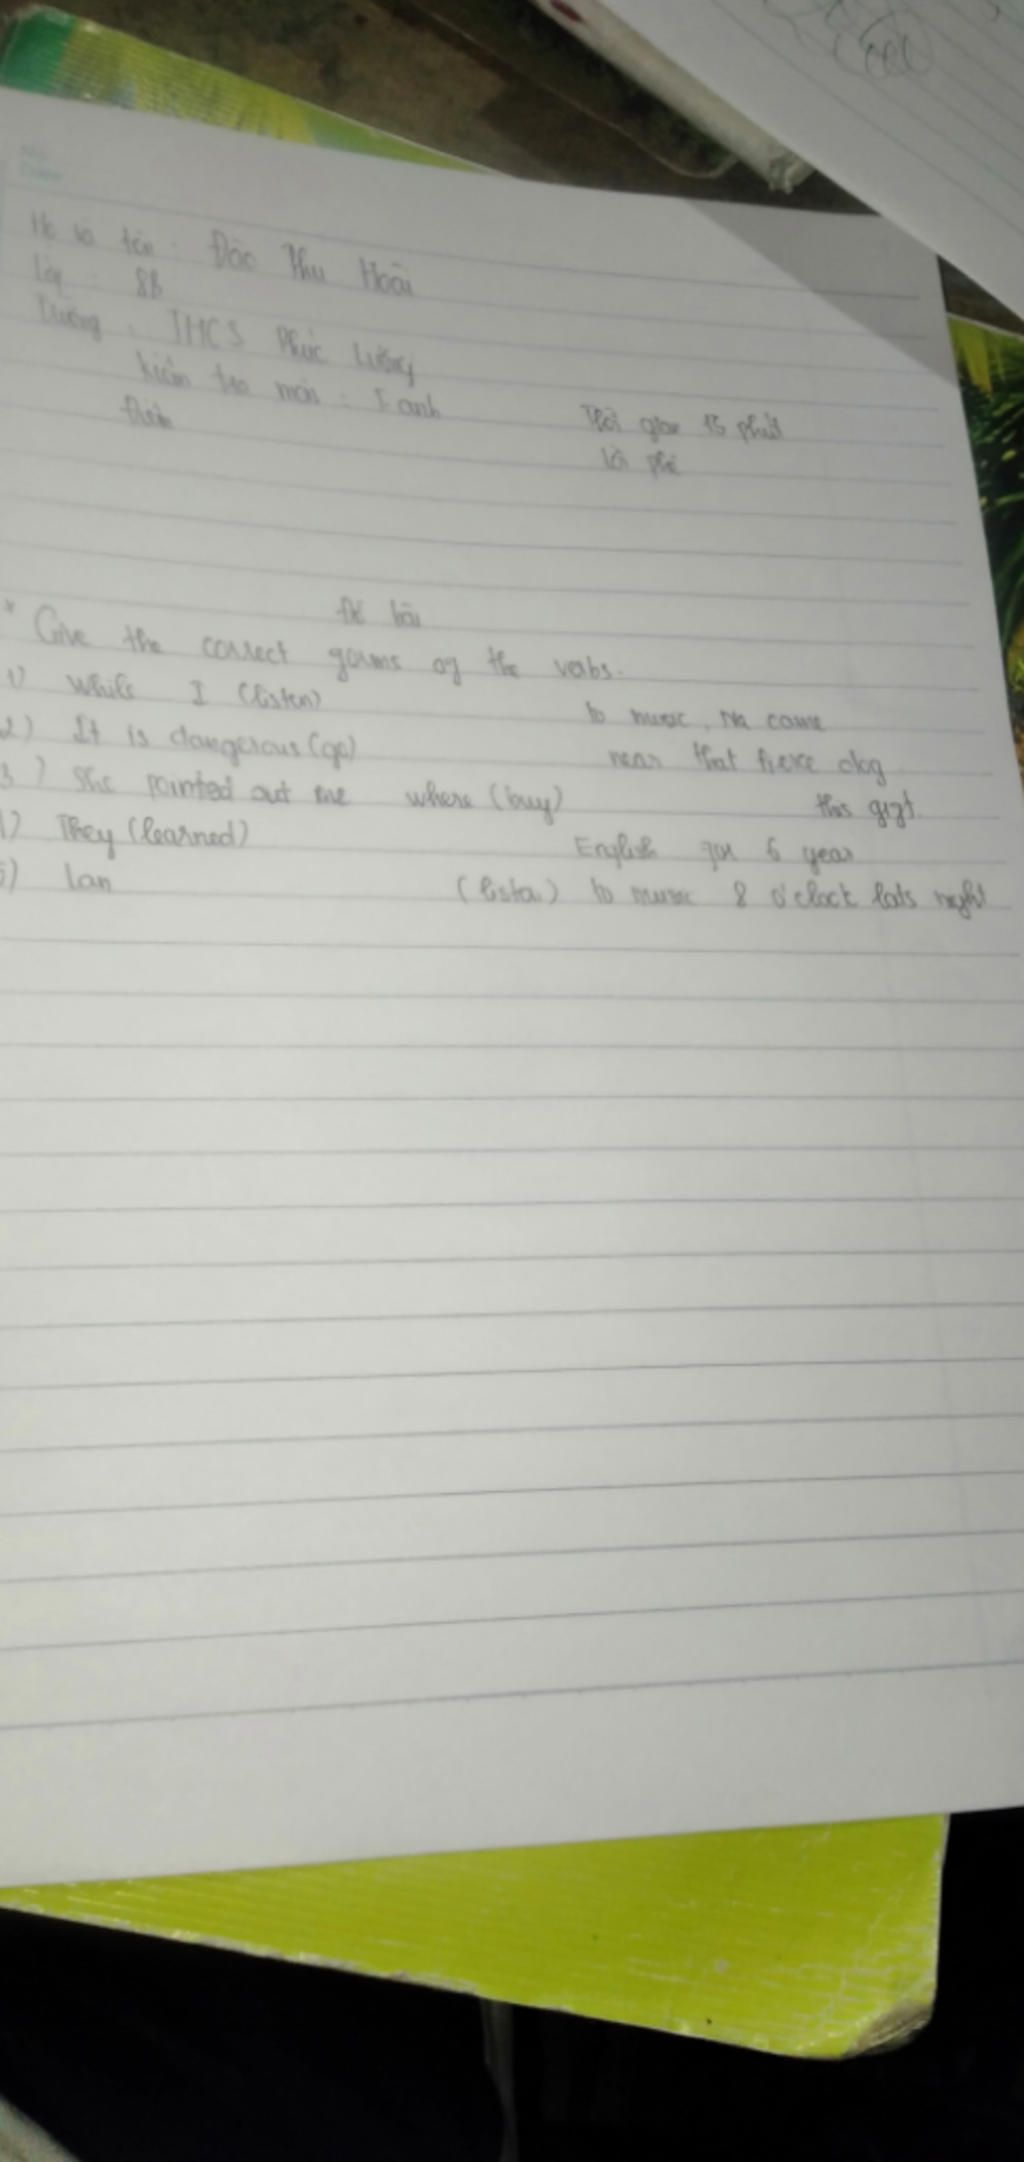 Họ và tên : Đào Thu Hoài
Lớp : 8B
Trường : THCS Phúc Lương
kiểm tra môn : T anh Thời gian 15 phút
Điểm lời phê
Đề bài
* Give the correct forms of the verbs.
1) While I (listen) to music, Na came
2) It is dangerous (go) near that fierce dog
3) She pointed out me where (buy) this gift.
4) They (learned) English for 6 year
5) Lan (listen) to music 8 o'clock lats night